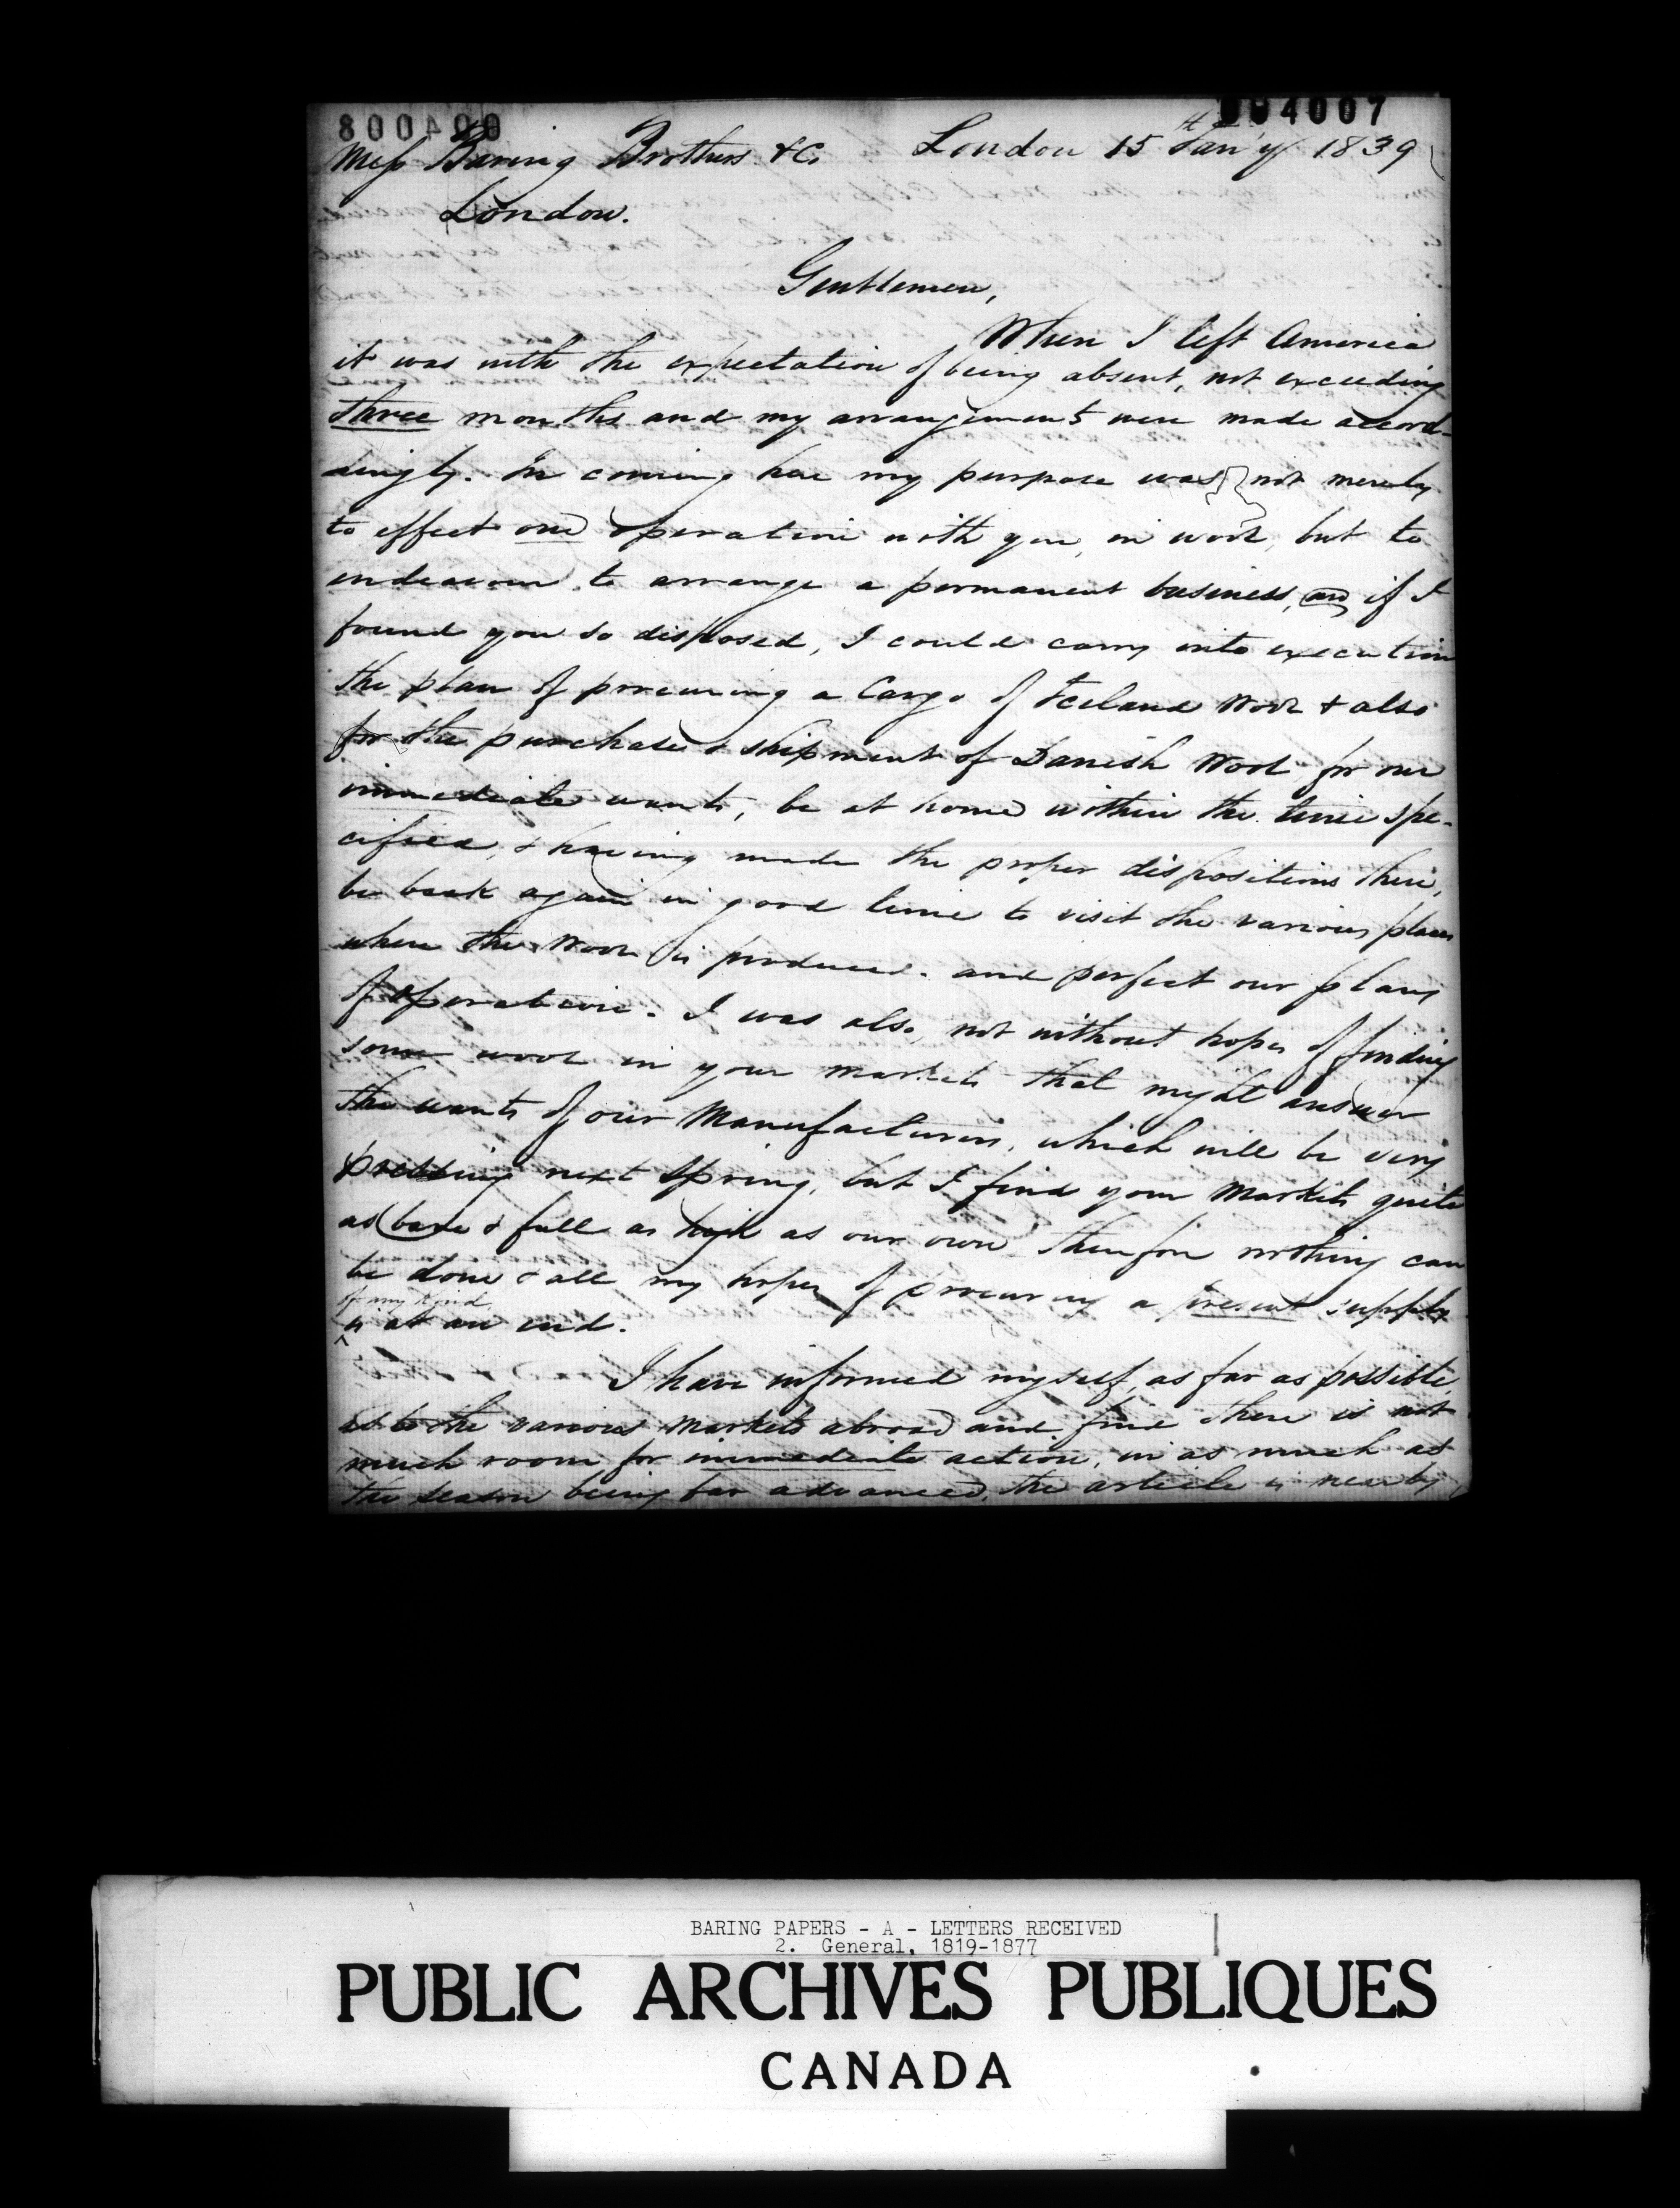 004007
London 15th Jan'y 1839
Mess Baring Brothers & Co
London.
Gentlemen,
When I left America
it was with the expectation of being absent, not exceeding
three months and my arrangements were made accord-
dingly. In coming here my purpose was not merely
to effect one operation with you, in wool, but to
endeavour to arrange a permanent business, and if I
found you so disposed, I could carry into execution
the plan of procuring a Cargo of Iceland Wool & also
for the purchase & shipment of Danish Wool for our
immediate wants, be at home within the time spe-
cified, & having made the proper dispositions there,
be back again in good time to visit the various places
where the Wool is produced. and perfect our plans
of operation. I was also, not without hopes of finding
some wool in your markets that might answer
the wants of our Manufacturers, which will be very
pressing next Spring, but I find your Markets quite
as bare & full as high as our own therefore nothing can
be done & all my hopes of procuring a present supply
of any kind,
is at an end.
I have informed myself, as far as possible,
as to the various Markets abroad and find there is not
much room for immediate action, in as much as
the season being far advanced, the article is nearly
BARING PAPERS - A - LETTERS RECEIVED
2. General, 1819-1877
PUBLIC ARCHIVES PUBLIQUES
CANADA